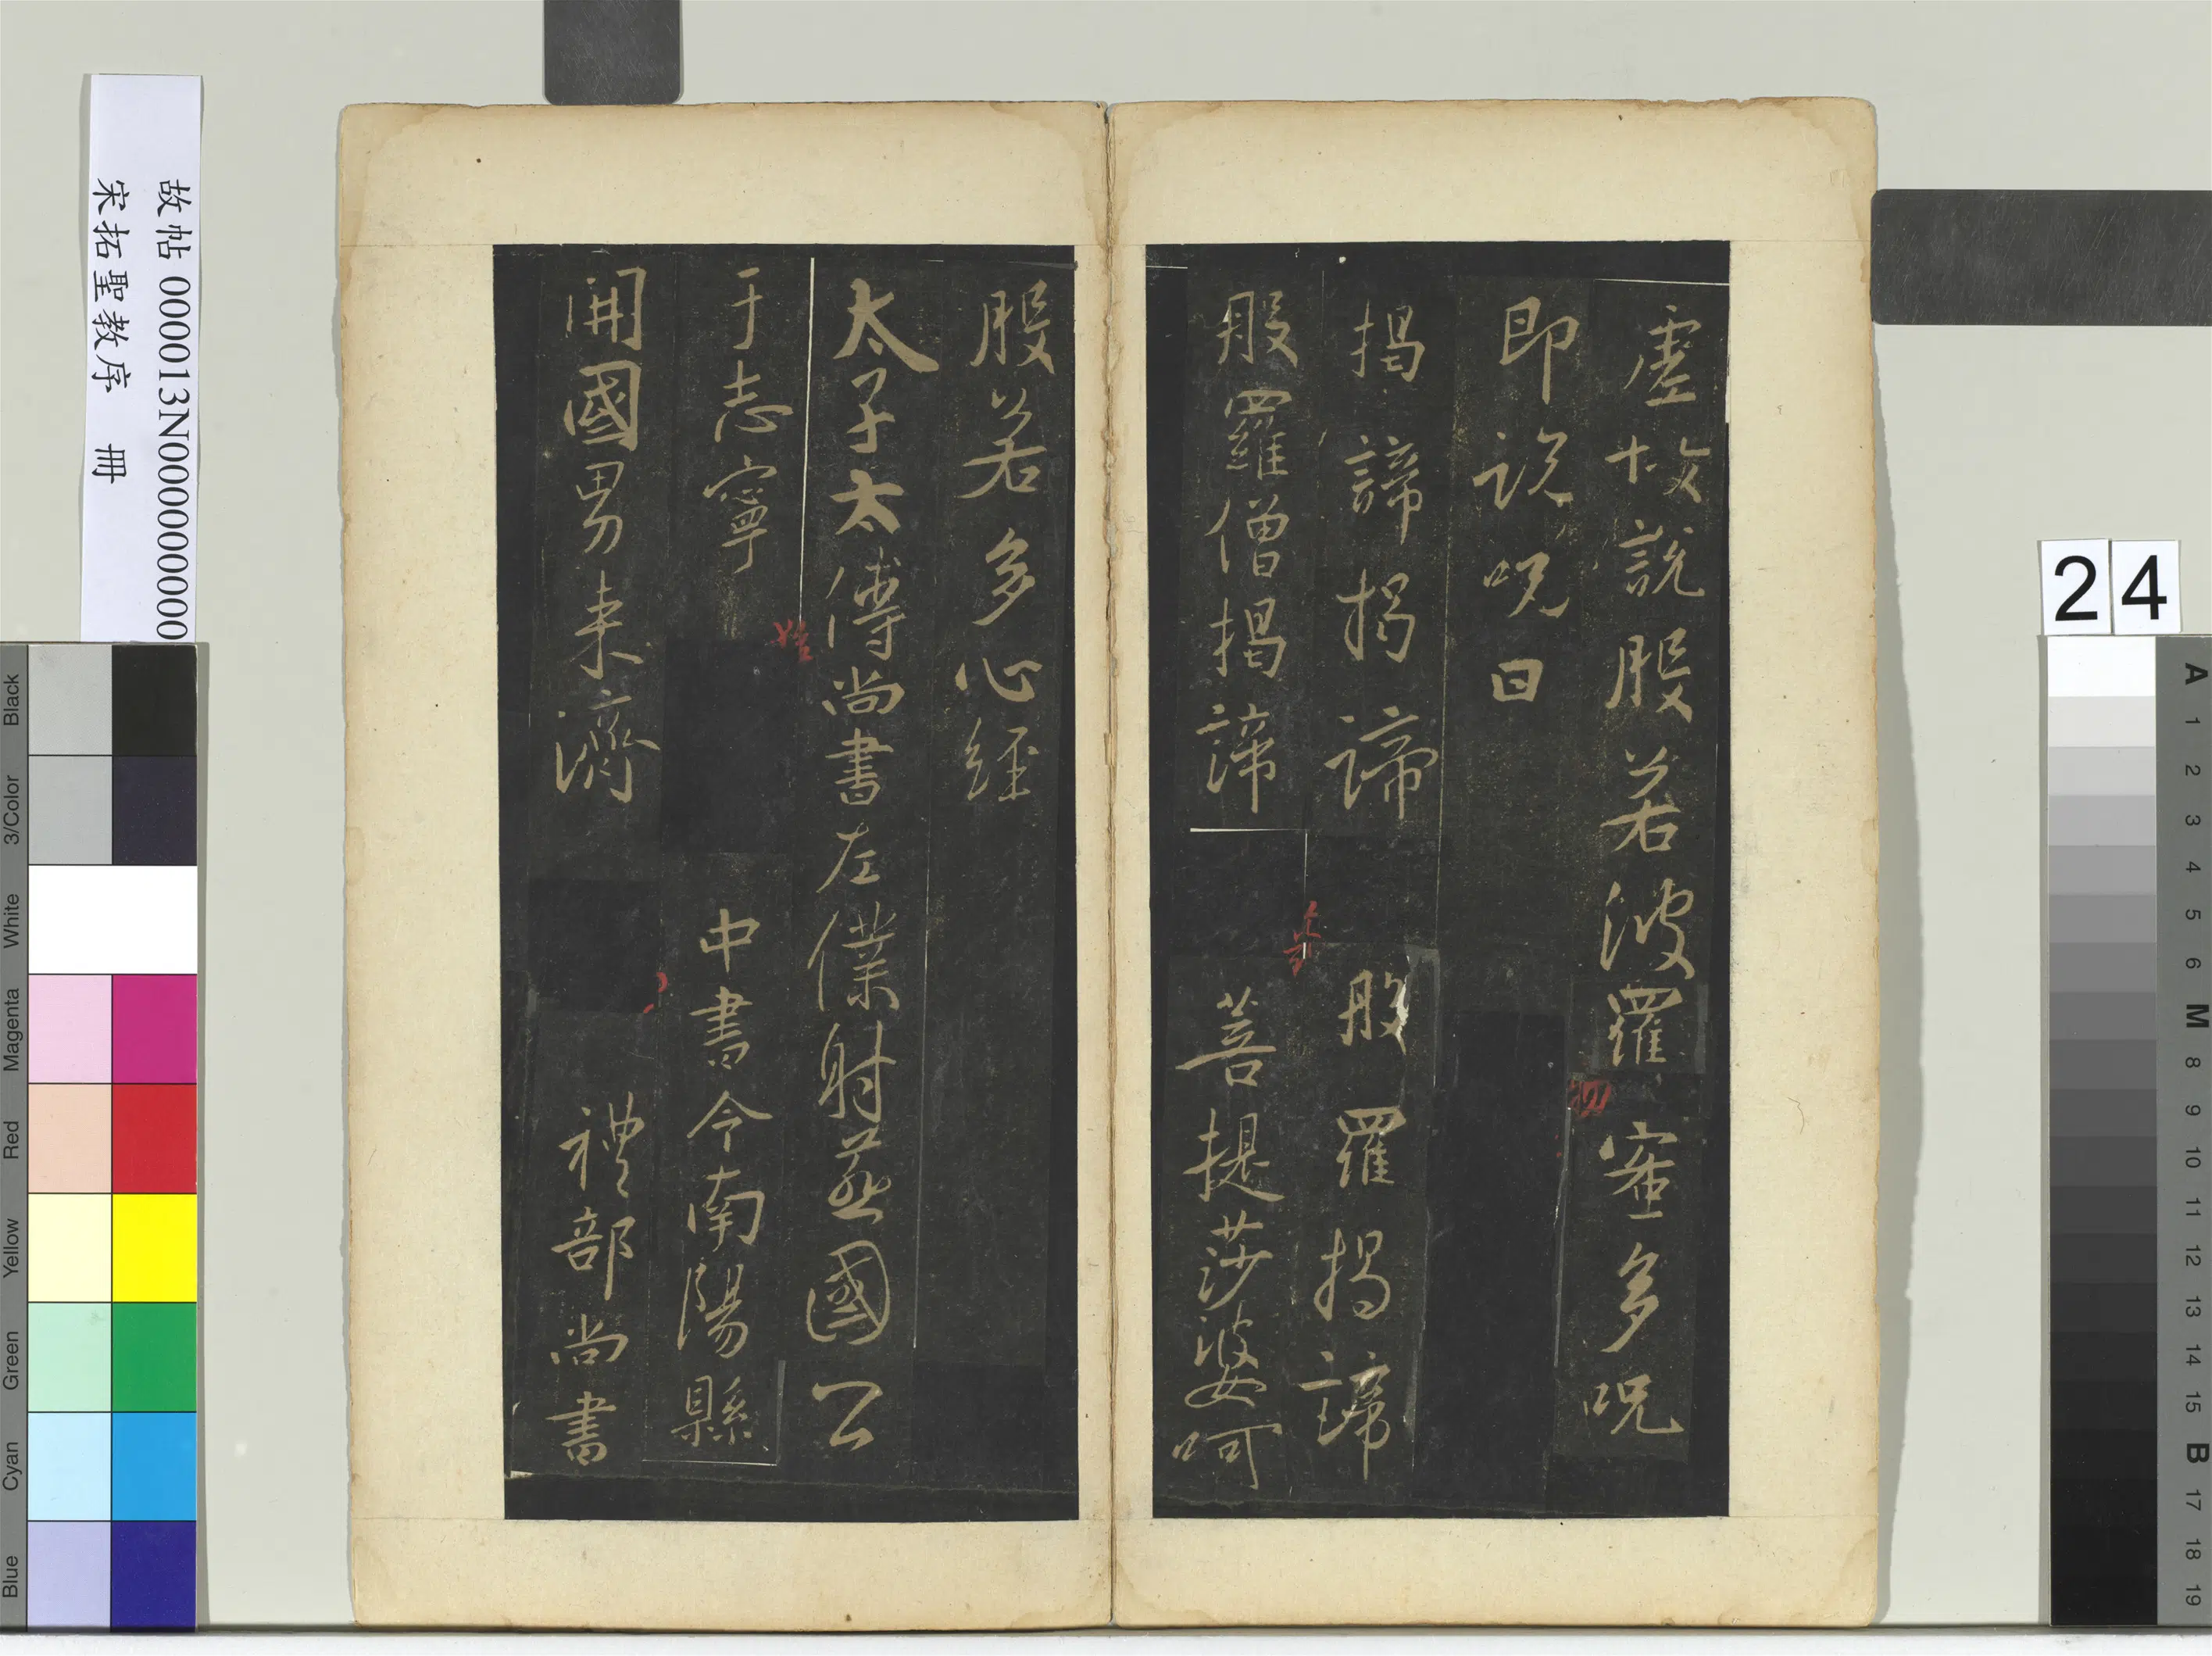 虛故說般若波羅蜜多呪
即說呪曰
揭諦揭諦 般羅揭諦
般羅僧揭諦 菩提莎婆呵
般若多心經
太子太傅尚書左僕射燕國公
于志寧 中書令南陽縣
開國男来濟 禮部尚書
故帖 000013N000000000
宋拓聖教序 冊
24
Black
3/Color
White
Magenta
Red
Yellow
Green
Cyan
Blue
A
1
2
3
4
5
6
M
8
9
10
11
12
13
14
15
B
17
18
19